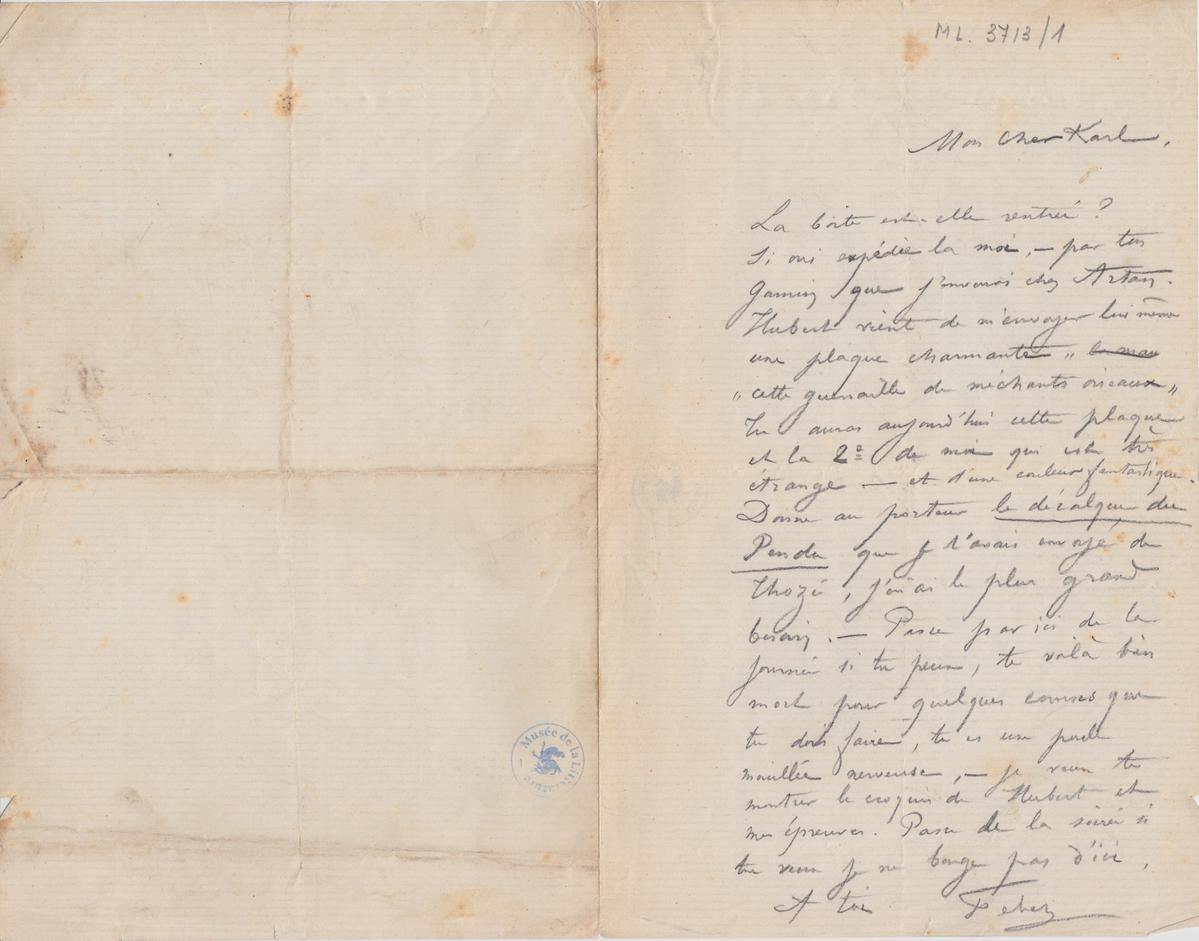 ML. 3713/1
Mon cher Karl,
La boite est-elle rentrée ?
Si oui expédie la moi, — par ton
gamin que j'enverrai chez Artan.
Hubert vient de m'envoyer lui même
une plaque charmante „
„ cette guenaille de méchants oiseaux „
Tu auras aujourd'hui cette plaque
et la 2e de moi qui est très
étrange — et d'une couleur fantastique.
Donne au porteur le décalque du
Pendu que je t'avais envoyé de
Thozée, j'en ai le plus grand
besoin. — Passe par ici de la
journée si tu peux, te voilà bien
mort pour quelques courses que
tu dois faire, tu es une poule
mouillée nerveuse, — je veux te
montrer le croquis de Hubert et
mes épreuves. Passe de la soirée si
tu veux je ne bouge pas d'ici.
A toi
Musée de la Littérature